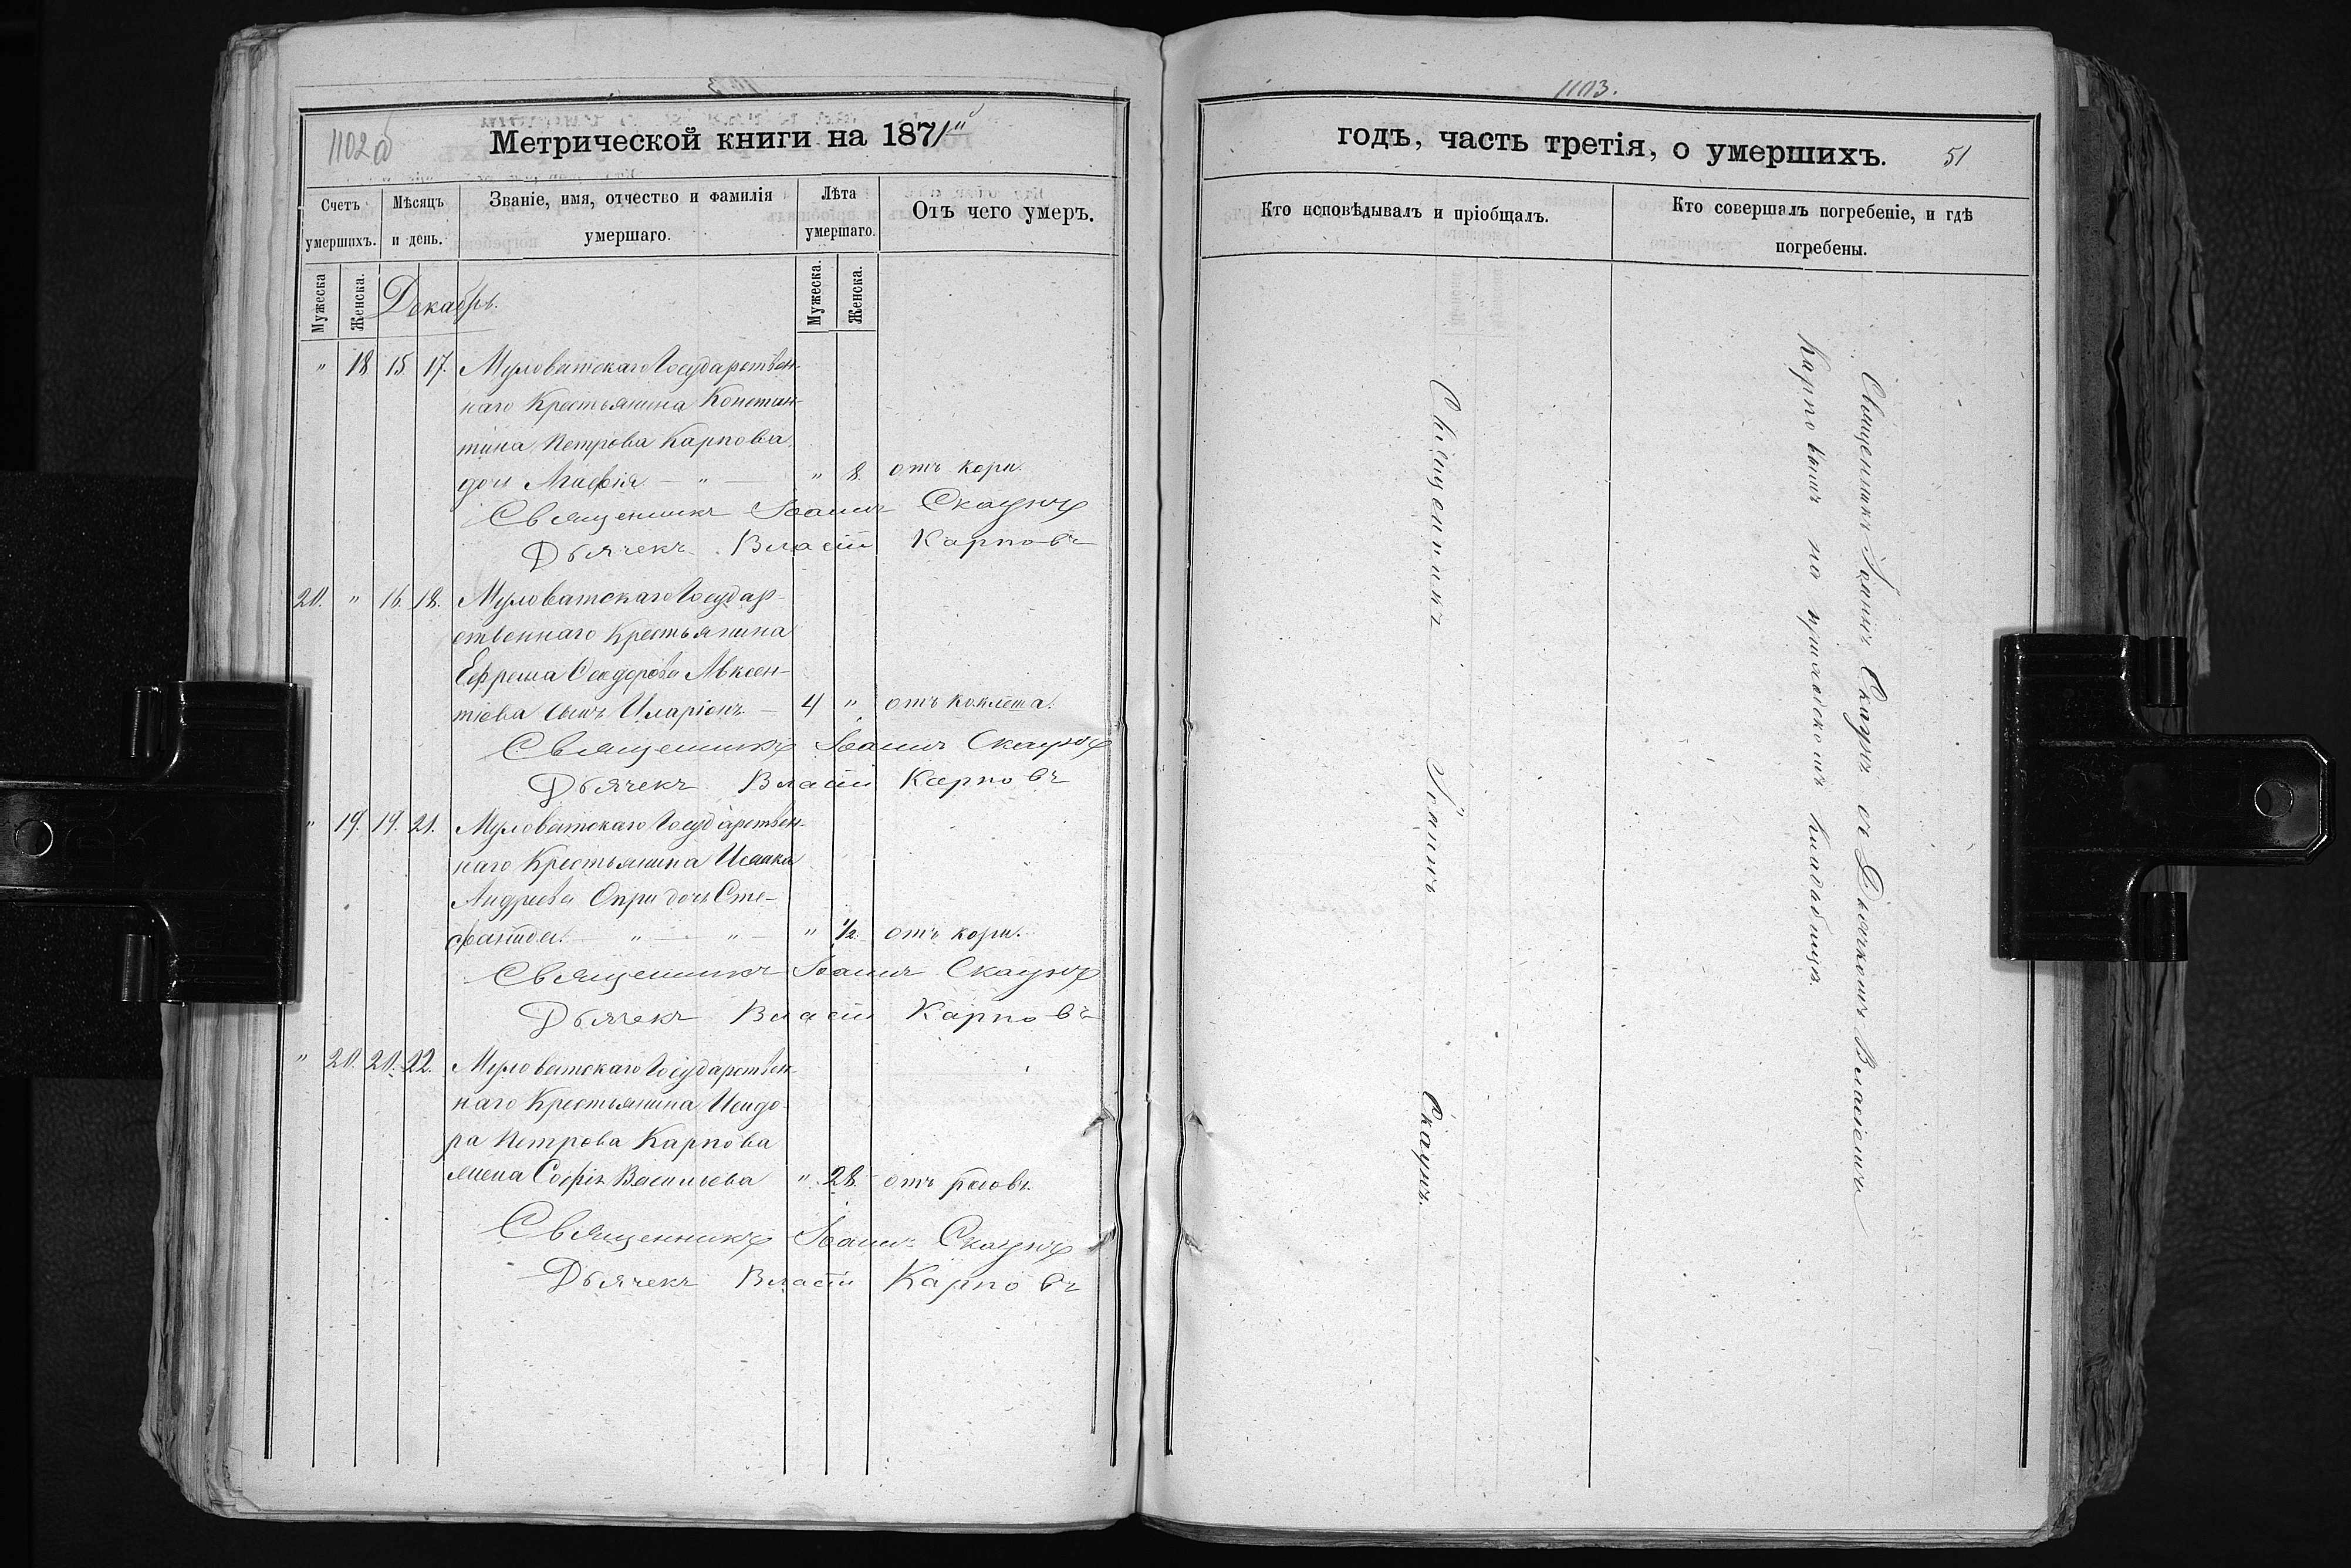 1102 об
Метрической книги на 1871й
Счетъ умершихъ.
Мѣсяцъ и день.
Званіе, имя, отчество и фамилія умершаго.
Лѣта умершаго.
Отъ чего умеръ.
Мужеска
Женска.
Мужеска.
Женска.
Декабрь.
" 18 15 17. Муловатскаго Государствен-
наго Крестьянина Констан-
тина Петрова Карпова
дочь Агафія — " — " 8. отъ кори.
Священникъ Іоаннъ Скаунъ
Дьячекъ Власій Карповъ
20. " 16. 18. Муловатскаго Государ-
ственнаго Крестьянина
Ефрема Ѳеодорова Авксен-
тіева сынъ Иларіонъ — 4 " отъ коклета.
Священникъ Іоаннъ Скаунъ
Дьячекъ Власій Карповъ
" 19. 19. 21. Муловатскаго Государствен-
наго Крестьянина Исаака
Андреева Опри дочь Сте-
фанида. — " — " — " 1/2. отъ кори.
Священникъ Іоаннъ Скаунъ
Дьячекъ Власій Карповъ
" 20. 20. 22. Муловатскаго Государствен-
наго Крестьянина Исидо-
ра Петрова Карпова
жена Софія Васильева " 28. отъ родовъ.
Священникъ Іоаннъ Скаунъ
Дьячекъ Власій Карповъ
1103.
годъ, часть третія, о умершихъ.
51
Кто исповѣдывалъ и пріобщалъ.
Кто совершалъ погребеніе, и гдѣ
погребены.
Священникъ Іоаннъ Скаунъ.
Священникъ Іоаннъ Скаунъ съ Дьячкомъ Власіемъ
Карповымъ на приходскомъ кладбищѣ.